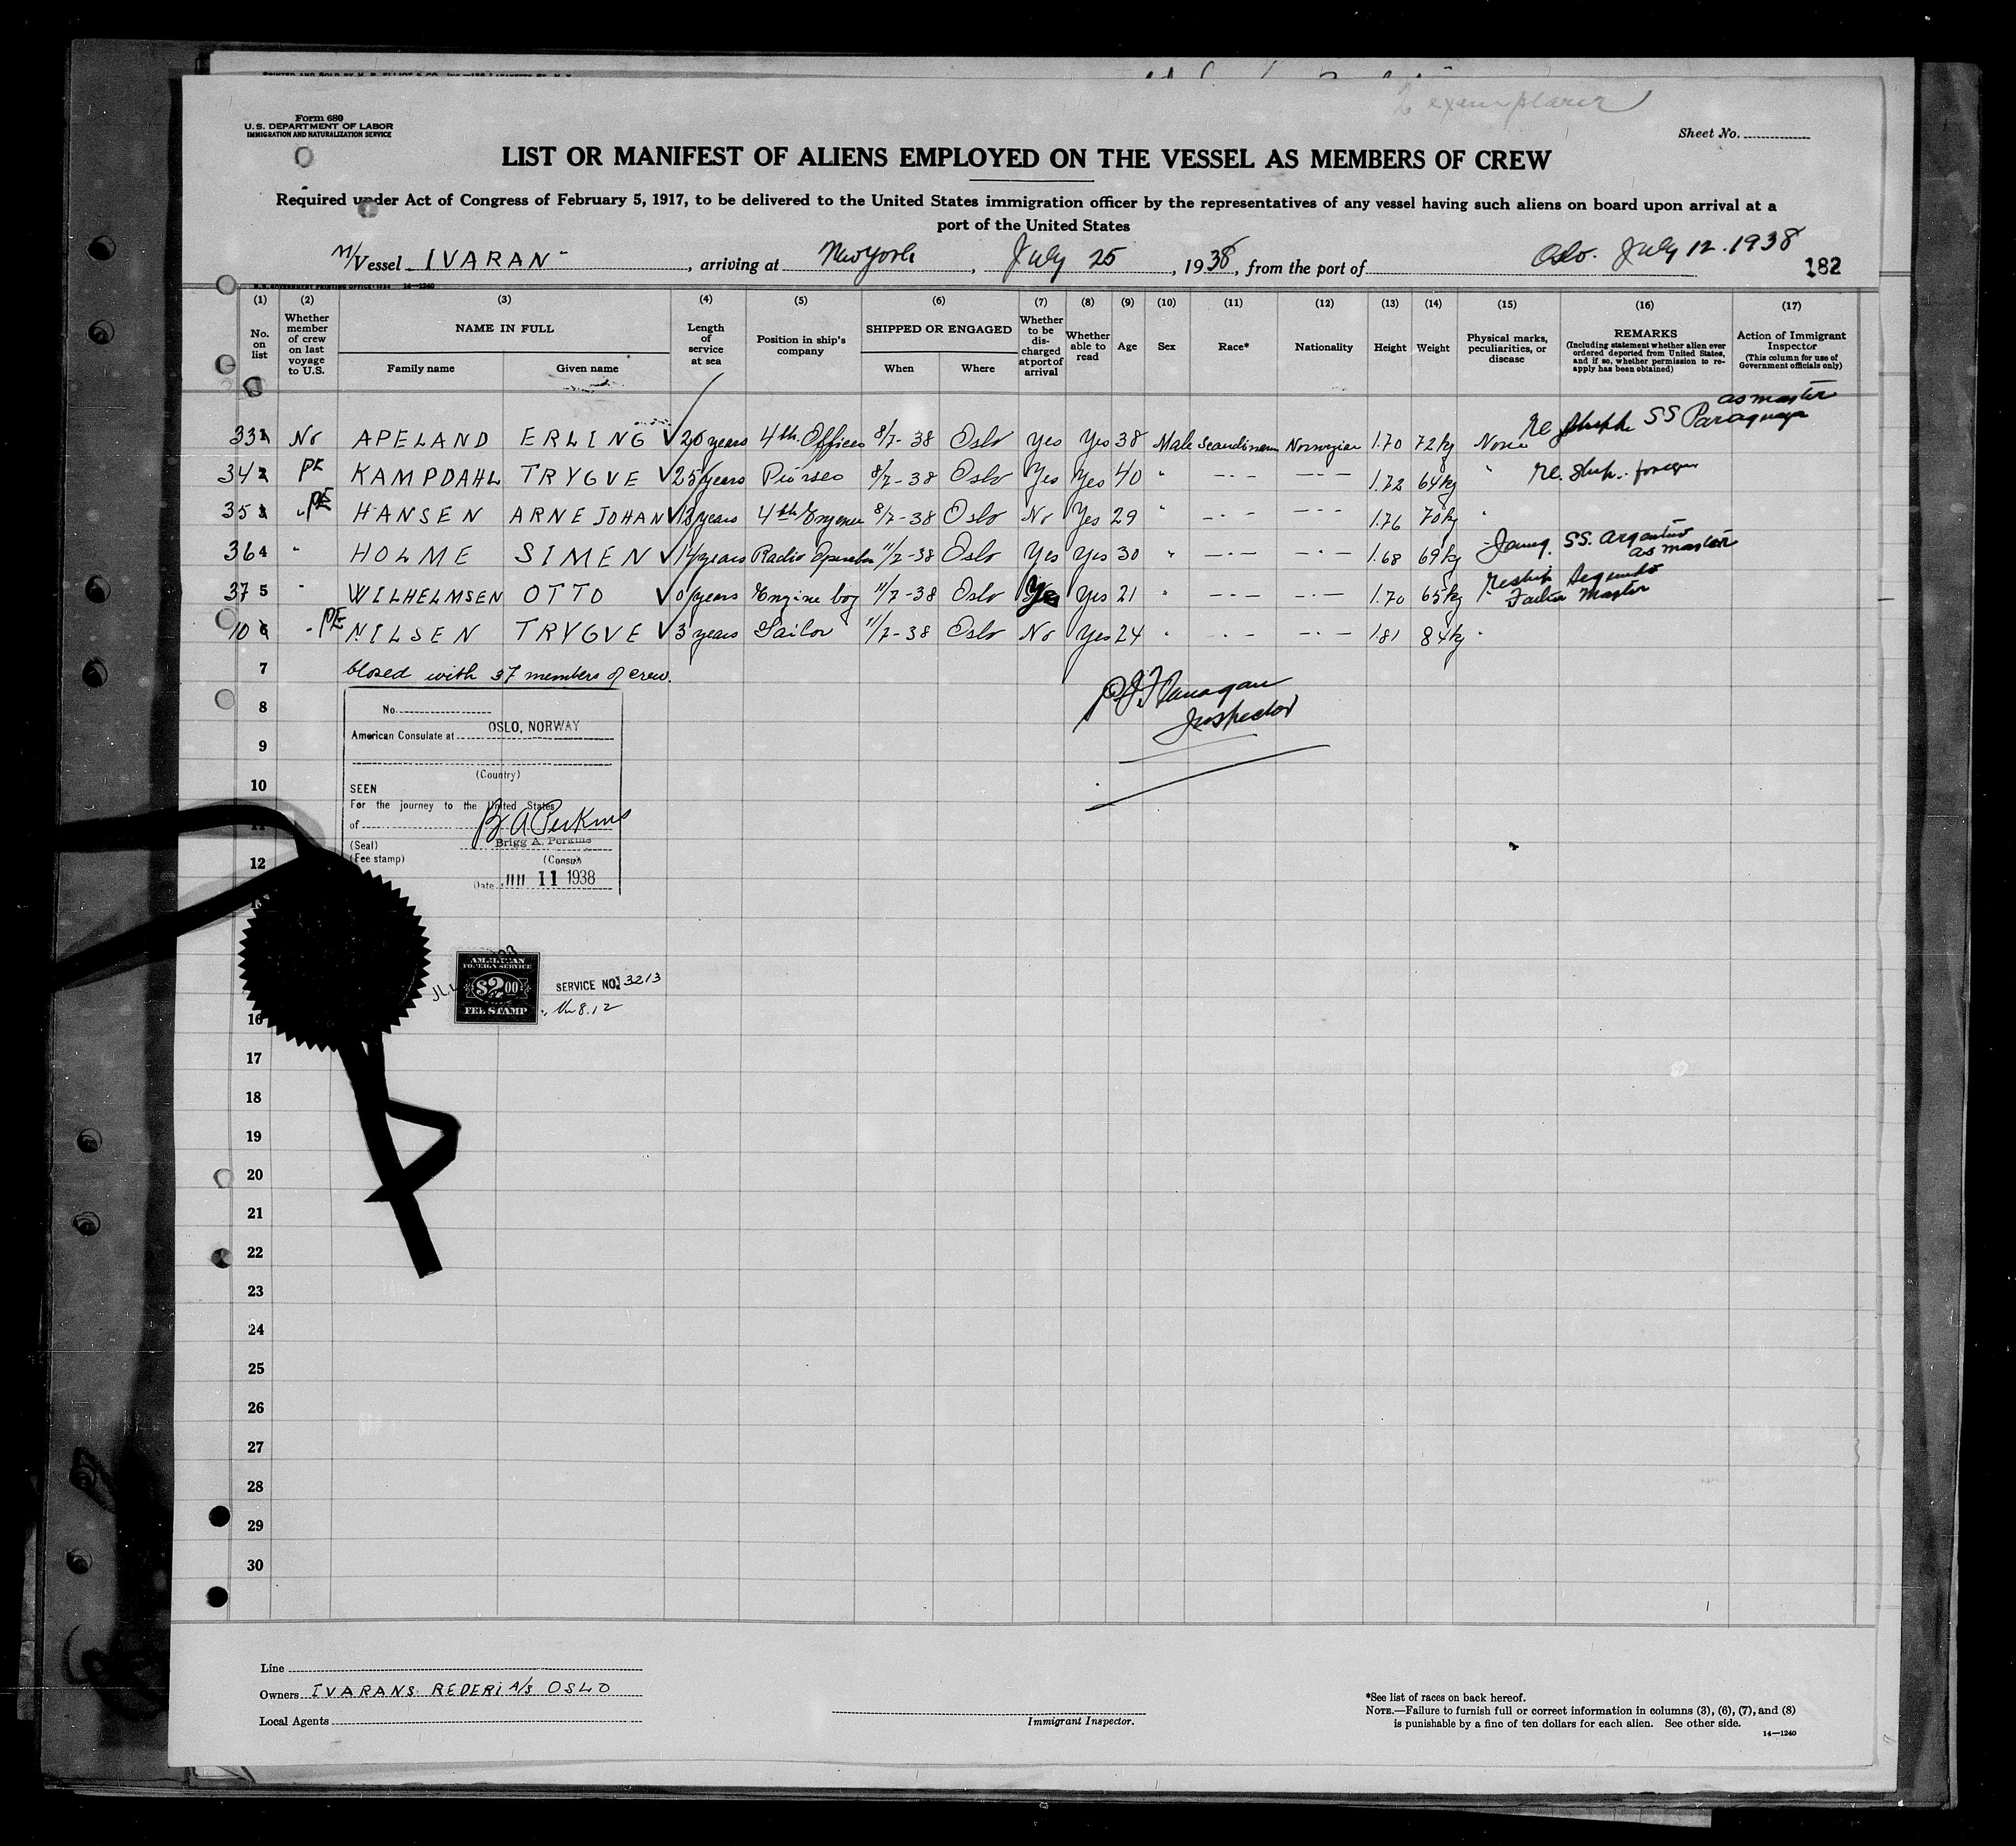 2 exemplarer
Form 680
U.S. DEPARTMENT OF LABOR
IMMIGRATION AND NATURALIZATION SERVICE
Sheet No.
LIST OR MANIFEST OF ALIENS EMPLOYED ON THE VESSEL AS MEMBERS OF CREW
Required under Act of Congress of February 5, 1917, to be delivered to the United States immigration officer by the representatives of any vessel having such aliens on board upon arrival at a
port of the United States
M/Vessel IVARAN, arriving at New York, July 25, 1938, from the port of Oslo. July 12. 1938
182
(1) No. on list
(2) Whether member of crew on last voyage to U.S.
(3) NAME IN FULL Family name Given name
(4) Length of service at sea
(5) Position in ship's company
(6) SHIPPED OR ENGAGED When Where
(7) Whether to be discharged at port of arrival
(8) Whether able to read
(9) Age
(10) Sex
(11) Race*
(12) Nationality
(13) Height
(14) Weight
(15) Physical marks, peculiarities, or disease
(16) REMARKS (Including statement whether alien ever ordered deported from United States, and if so, whether permission to reapply has been obtained)
(17) Action of Immigrant Inspector (This column for use of Government officials only)
33 1 No APELAND ERLING √ 20 years 4th Officer 8/7-38 Oslo Yes Yes 38 Male Scandinavian Norwegian 1.70 72kg None SS Paraguay as master
34 2 PE KAMPDAHL TRYGVE √ 25 years 8/7-38 Oslo Yes Yes 40 " -"- 1.72 64kg " re. ship. foreign
35 3 " PE HANSEN ARNE JOHAN √ years 8/7-38 Oslo No Yes 29 " -"- -"- 1.76 70kg "
36 4 " HOLME SIMEN √ 14 years Radio Operator 11/7-38 Oslo Yes Yes 30 " -"- -"- 1.68 69kg SS. as master
37 5 " WILHELMSEN OTTO √ 0 years Engine boy 11/7-38 Oslo Yes Yes 21 " -"- -"- 1.70 65kg " reship Master
10 6 " PE NILSEN TRYGVE √ 3 years Sailor 11/7-38 Oslo No Yes 24 " -"- -"- 1.81 84kg "
7 Closed with 37 members of crew.
P.J. Flanagan
Inspector
8
No.
American Consulate at OSLO, NORWAY
9
(Country)
10
SEEN
For the journey to the United States
of
B A Perkins
Brigg A. Perkins
(Seal)
(Fee stamp)
(Consul)
12
Date JUL 11 1938
AMERICAN
FOREIGN SERVICE
$2.00
FEE STAMP
SERVICE NO. 3213
16
17
18
19
20
21
22
23
24
25
26
27
28
29
30
Line
Owners IVARANS REDERI A/S OSLO
Local Agents
Immigrant Inspector.
*See list of races on back hereof.
NOTE.—Failure to furnish full or correct information in columns (3), (6), (7), and (8)
is punishable by a fine of ten dollars for each alien. See other side.
14—1240